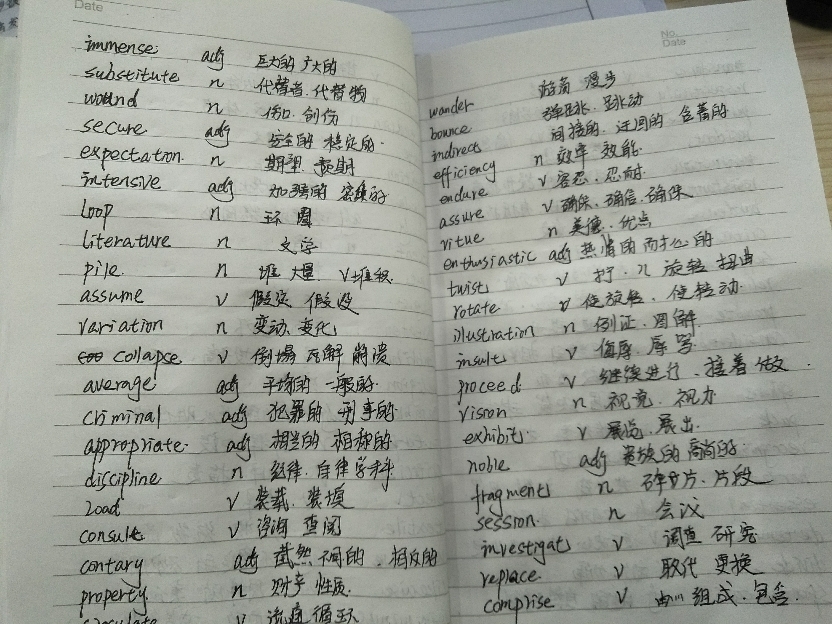 Date
immense adj 巨大的 广大的
substitute n 代替者、代替物
wound n 伤口 创伤
secure adj 安全的 稳定的
expectation n 期望 预期
intensive adj 加强的 密集的
loop n 环 圈
literature n 文学
pile n 堆 大量 v堆积
assume v 假定 假设
variation n 变动、变化
collapse v 倒塌 瓦解 崩溃
average adj 平均的 一般的
criminal adj 犯罪的 刑事的
appropriate adj 相当的 相称的
discipline n 纪律、自律 学科
load v 装载、装填
consult v 咨询 查阅
contary adj 截然不同的、相反的
property n 财产 性质
v 流通 循环
No.
Date
wander 漫步
bounce 弹跳、跳动
indirect 间接的、迂回的 含蓄的
efficiency n 效率 效能
endure v 容忍、忍耐
assure v 确保、确信、确保
vitue n 美德、优点
enthusiastic adj 热情的
twist v 拧、 旋转 扭曲
rotate v 使旋转、使转动
illustration n 例证、图解
insult v 侮辱、辱骂
proceed v 继续进行、接着做
vision n 视觉、视力
exhibit v 展览、展出
noble adj 贵族的 高尚的
fragment n 碎片、片段
session n 会议
investigat v 调查 研究
replace v 取代 更换
comprise v 由… 组成、包含